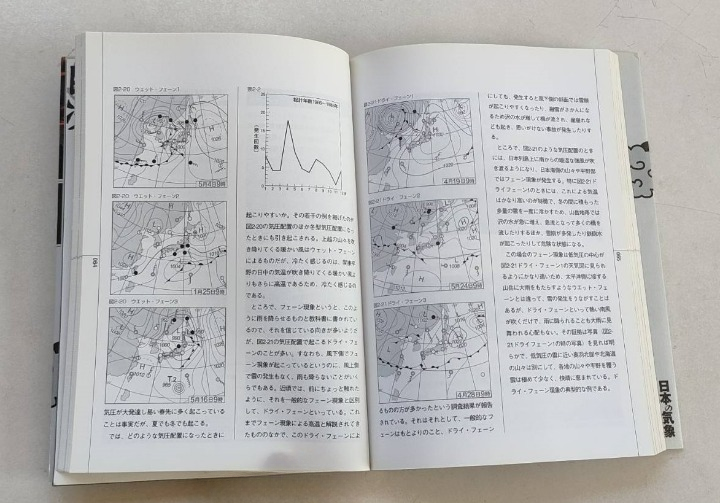 図2-20 ウェット・フェーン1
5月4日9時
図2-20 ウエット・フェーン2
1月25日9時
図2-20 ウエット・フェーン3
5月16日9時
気圧が大発達し易い春先に多く起こっている
ことは事実だが、夏でも冬でも起こる。
では、どのような気圧配置になったときに
図2-2
統計年数
(発生回数)
起こりやすいか。その若干の例を掲げたのが
図2-20の気圧配置のほか冬型気圧配置になっ
たときにも引き起こされる。上越の山々を吹
き降りてくる暖かい風はウェット・フェーン
によるものだが、冷たく感じるのは、関東平
野の日中の気温が吹き降りてくる暖かい風よ
りもさらに高温であるため、冷たく感じるの
である。
ところで、フェーン現象というと、このよ
うに雨を降らせるものと教科書に書かれてい
るので、それを信じている向きが多いようだ
が、図2-21の気圧配置で起こるドライ・フェー
ンのことが多い。すなわち、風下側でフェー
ン現象が起こっているというのに、風上側
で雲の発生もなく、雨も降らないことがいく
らでもある。近頃では、前にちょっと触れた
ように、それを一般的なフェーン現象と区別
して、ドライ・フェーンといっている。これ
までフェーン現象による高温と解説されてき
たもののなかで、このドライ・フェーンによ
図2-21ドライ・フェーン1
4月19日9時
図2-21 ドライ・フェーン2
5月24日9時
図2-21ドライ・フェーン3
4月28日9時
るものの方が多かったという調査結果が報告
されている。それはそれとして、一般的なフ
ェーンはもとよりのこと、ドライ・フェーン
にしても、発生すると風下側の斜面では雪崩
が起こりやすくなったり、融雪がさかんにな
るため沢の水が増して橋が流され、崖崩れな
ども起き、思いがけない事故が発生したりす
る。
ところで、図2-21のような気圧配置のとき
には、日本列島上に南からの暖湿な強風が吹
き渡るようになり、日本海側の山々や平野部
ではフェーン現象が発生する。特に図2-21ド
ライフェーン1のときには、これによる気温
はかなり高いのが特徴で、冬の間に積もった
多量の雪を一度に溶かすため、山岳地帯では
沢の水が急に増え、急流となって多くの橋を
流したりするほか、雪崩が多発したり鉄砲水
が起こったりして危険な状態になる。
この場合のフェーン現象は低気圧の中心が
図2-21ドライ・フェーン1の天気図に見られる
ようにかなり遠いため、太平洋側に接する
山岳に大雨をもたらすようなウエット・フェ
ーンとは違って、雲の発生をうながすことは
あるが、ドライ・フェーンといって熱い南風
が吹くだけで、雨に降られることも大雨に見
舞われる心配もない。その証拠は写真(図2-
21ドライフェーン1の時の写真)を見れば明
の山々は別にして、各地の山々や平野を覆う
雲は極めて少なく、快晴に恵まれている。ド
ライ・フェーン現象の典型的な例である。
日本の気象